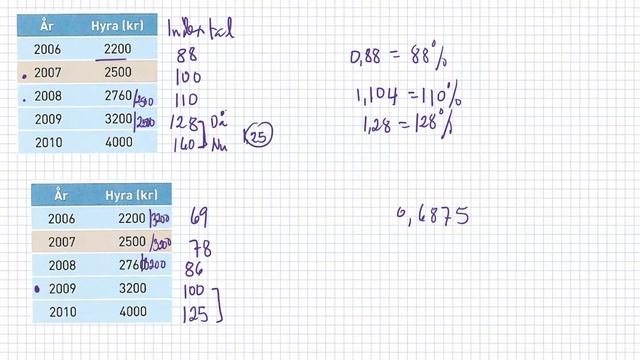 År Hyra (kr) Indextal
2006 2200 88
2007 2500 100
2008 2760/2500 110
2009 3200/2500 128 Då
2010 4000 160 Nu 1,25
0,88 = 88%
1,104 = 110%
1,28 = 128%
År Hyra (kr)
2006 2200/3200 69
2007 2500/3200 78
2008 2760/3200 86
2009 3200 100
2010 4000 125
0,6875